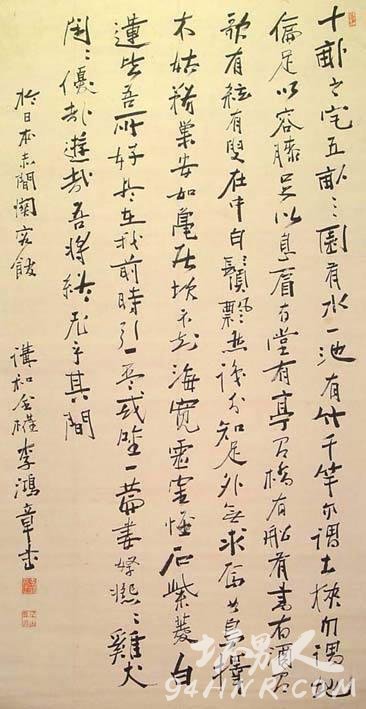 十畝之宅五畝之園有水一池有竹千竿勿謂土狹勿謂地
偏足以容膝足以息肩有堂有亭有橋有船有書有酒有
歌有絃有叟在中白鬚飄然識分知足外無求焉如鳥擇
木姑務巢安如龜居坎不知海寬靈寉怪石紫菱白
蓮皆吾所好盡在我前時引一杯或吟一篇妻孥熙熙雞犬
閒閒優哉遊哉吾將終老乎其間
於日本赤間關客館
講和全權李鴻章書
94HNR.COM